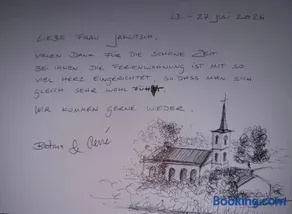 LIEBE FRAU JAKUTSCH,
VIELEN DANK FÜR DIE SCHÖNE ZEIT
BEI IHNEN. DIE FERIENWOHNUNG IST MIT SO
VIEL HERZ EINGERICHTET, SO DASS MAN SICH
GLEICH SEHR WOHL FÜHLT.
WIR KOMMEN GERNE WIEDER.
& René
Booking.com